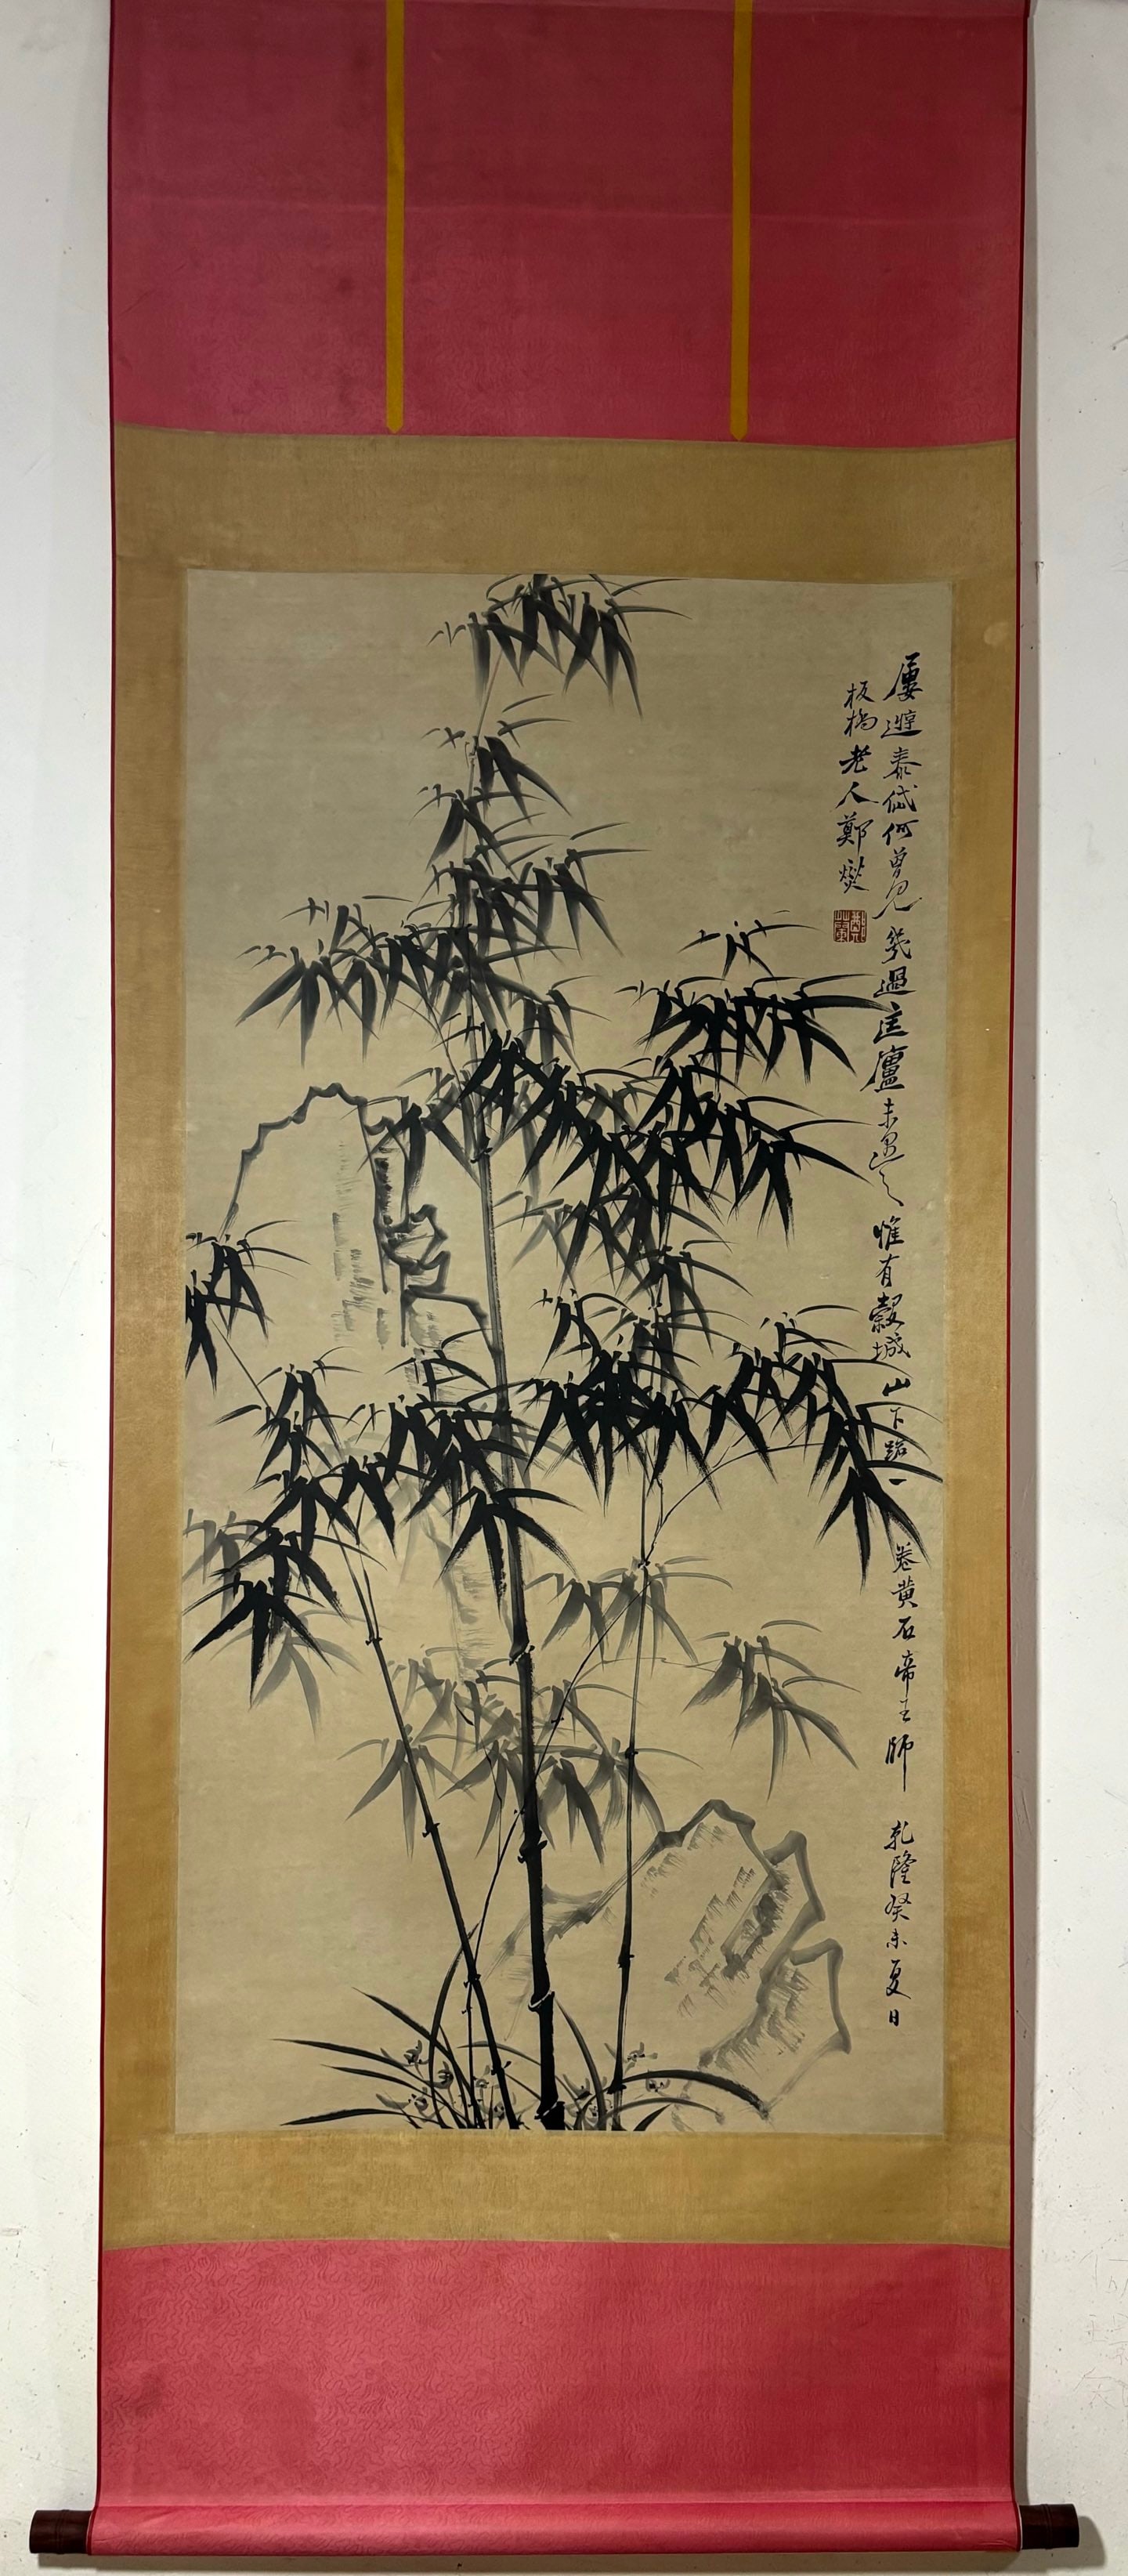 屢遊泰岱何曾見幾過匡廬未遇之惟有穀城山下路一卷黄石帝王師 乾隆癸未夏日
板橋老人鄭燮